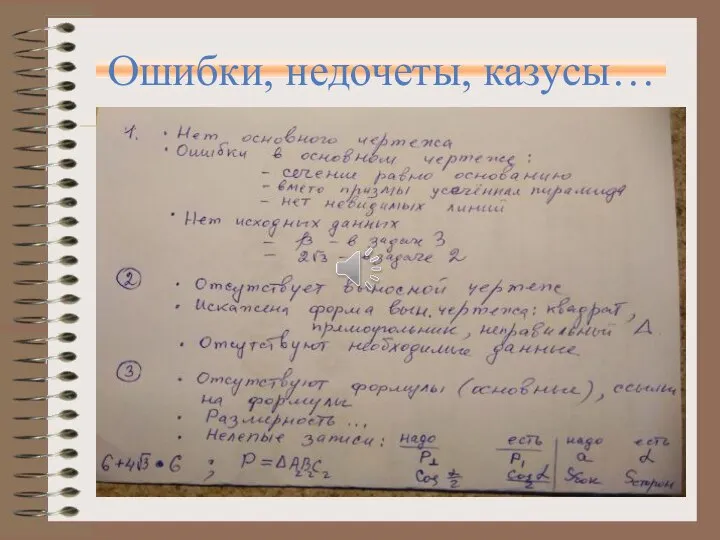 Ошибки, недочеты, казусы…
1. • Нет основного чертежа
• Ошибки в основном чертеже:
– сечение равно основанию
– вмето призмы усечённая пирамида
– нет невидимых линий
• Нет исходных данных
– β – в задач 3
– 2√3 – в задаче 2
2 • Отсутствует выносной чертеж
• Искажена форма вын. чертежа: квадрат,
прямоугольник, неправильный Δ.
• Отсутствуют необходимые данные.
3 • Отсутствуют формулы (основные), ссылки
на формулы
• Размерность...
• Нелепые записи: надо есть надо есть
6+4√3•6 ; P=ΔA₂B₂C₂ a α
Sбок Sсторон